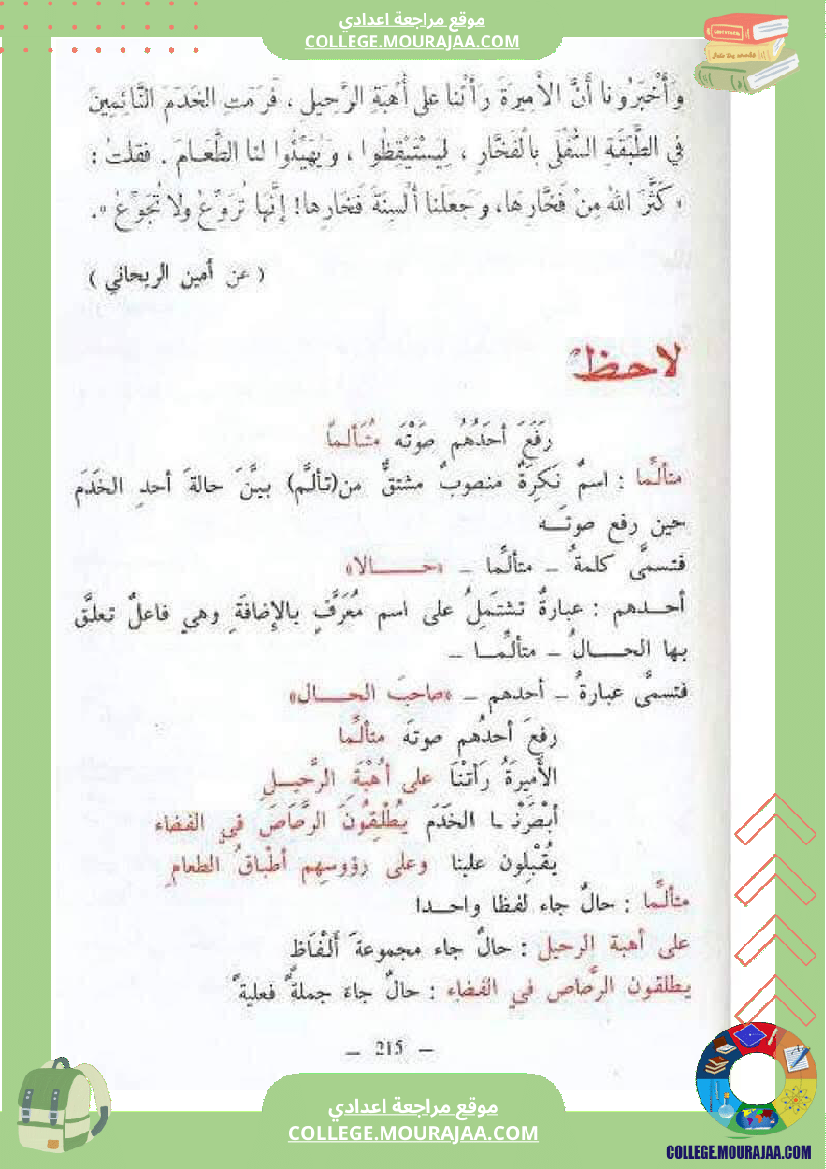 موقع مراجعة اعدادي
COLLEGE.MOURAJAA.COM
وَأَخْبَرُونا أَنَّ الأَمِيرَةَ رَأَتْنا على أُهْبَةِ الرَّحِيلِ ، فَرَمَتِ الخَدَمَ النَّائِمِينَ
في الطَّبَقَةِ السُّفْلَى بِالْفَخَّارِ ، لِيَسْتَيْقِظُوا ، وَيُهَيِّئُوا لنا الطَّعَامَ . فقلتُ :
« كَثَّرَ اللهُ مِنْ فَخَّارِهَا، وَجَعَلَنا أَلْسِنَةَ فَخَّارِها! إنَّهَا تُرَوِّعُ ولا تُجَوِّعُ ».
( عن أمين الريحاني )
لاحظ
رَفَعَ أحَدُهُم صَوْتَه مُتَألـمًا
متألِّما : اسمٌ نَكِرَةٌ منصوبٌ مشتقٌّ من(تألَّم) بيـَّنَ حالةَ أحدِ الخَدَمِ
حين رفع صوتَـــه
فتسمَّى كلمةُ – متألِّما – «حـــــــالا»
أحـــدهم : عبارةٌ تشتَمِلُ على اسم مُعَرَّفٍ بالإضافَةِ وهي فاعلٌ تعلَّق
بها الحـــــالُ – متألِّمـــا –
فتسمَّى عبارةُ – أحدهم – «صاحبَ الحـــال»
رفعَ أحدُهم صوتَه متألِّما
الأَمِيرَةُ رَأَتْنَا على أُهْبَةِ الرَّحيـــلِ
أَبْصَرْنَـا الخَدَمَ يُطْلِقُونَ الرَّصَاصَ في الفضاء
يُقْبِلُون علينا وعلى رؤوسِهم أطْباقُ الطعامِ
متألِّما : حالٌ جاء لفظا واحـــدا
على أهبة الرحيل : حالٌ جاء مجموعةَ أَلْفَاظ
يطلقون الرَّصاص في الفضاء : حالٌ جاءَ جملةً فعليةً
– 215 –
موقع مراجعة اعدادي
COLLEGE.MOURAJAA.COM
COLLEGE.MOURAJAA.COM